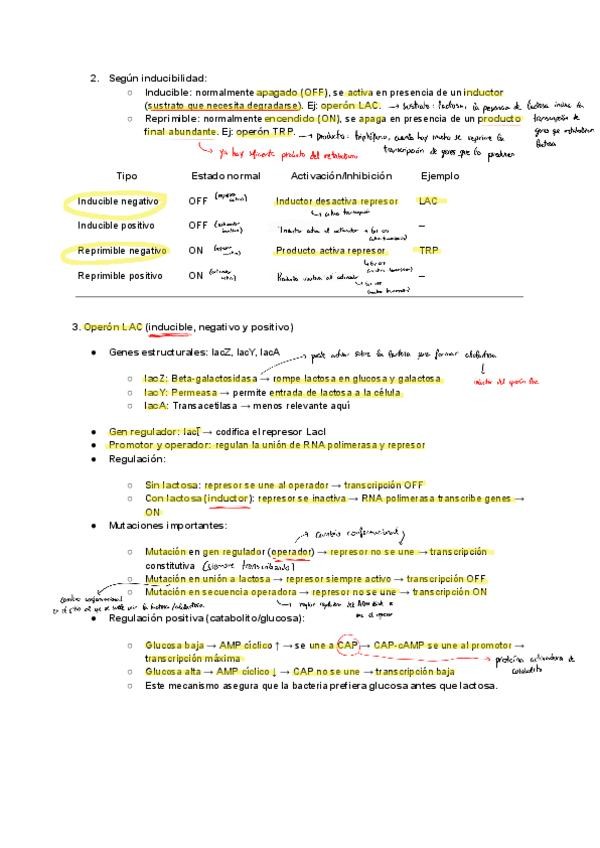 2. Según inducibilidad:
○ Inducible: normalmente apagado (OFF), se activa en presencia de un inductor
(sustrato que necesita degradarse). Ej: operón LAC. → sustrato: lactosa, la presencia de lactosa induce la
transcripción de
genes que metabolizan
lactosa
○ Reprimible: normalmente encendido (ON), se apaga en presencia de un producto
final abundante. Ej: operón TRP. → producto: triptófano, cuando hay mucho se reprime la
transcripción de genes que lo producen
→ ya hay suficiente producto del metabolismo
Tipo Estado normal Activación/Inhibición Ejemplo
Inducible negativo OFF Inductor desactiva represor LAC
Inducible positivo OFF –
Reprimible negativo ON Producto activa represor TRP
Reprimible positivo ON –
3. Operón LAC (inducible, negativo y positivo)
● Genes estructurales: lacZ, lacY, lacA → puede actuar sobre la lactosa para formar alolactosa
↓
inductor del operón lac
○ lacZ: Beta-galactosidasa → rompe lactosa en glucosa y galactosa
○ lacY: Permeasa → permite entrada de lactosa a la célula
○ lacA: Transacetilasa → menos relevante aquí
● Gen regulador: lacI → codifica el represor LacI
● Promotor y operador: regulan la unión de RNA polimerasa y represor
● Regulación:
○ Sin lactosa: represor se une al operador → transcripción OFF
○ Con lactosa (inductor): represor se inactiva → RNA polimerasa transcribe genes →
ON
● Mutaciones importantes:
→ cambio conformacional
○ Mutación en gen regulador (operador) → represor no se une → transcripción
constitutiva (siempre transcribiendo)
○ Mutación en unión a lactosa → represor siempre activo → transcripción OFF
cambio conformacional
○ Mutación en secuencia operadora → represor no se une → transcripción ON
● Regulación positiva (catabolito/glucosa):
○ Glucosa baja → AMP cíclico ↑ → se une a CAP → CAP-cAMP se une al promotor →
transcripción máxima
proteína activadora de
catabolito
○ Glucosa alta → AMP cíclico ↓ → CAP no se une → transcripción baja
○ Este mecanismo asegura que la bacteria prefiera glucosa antes que lactosa.